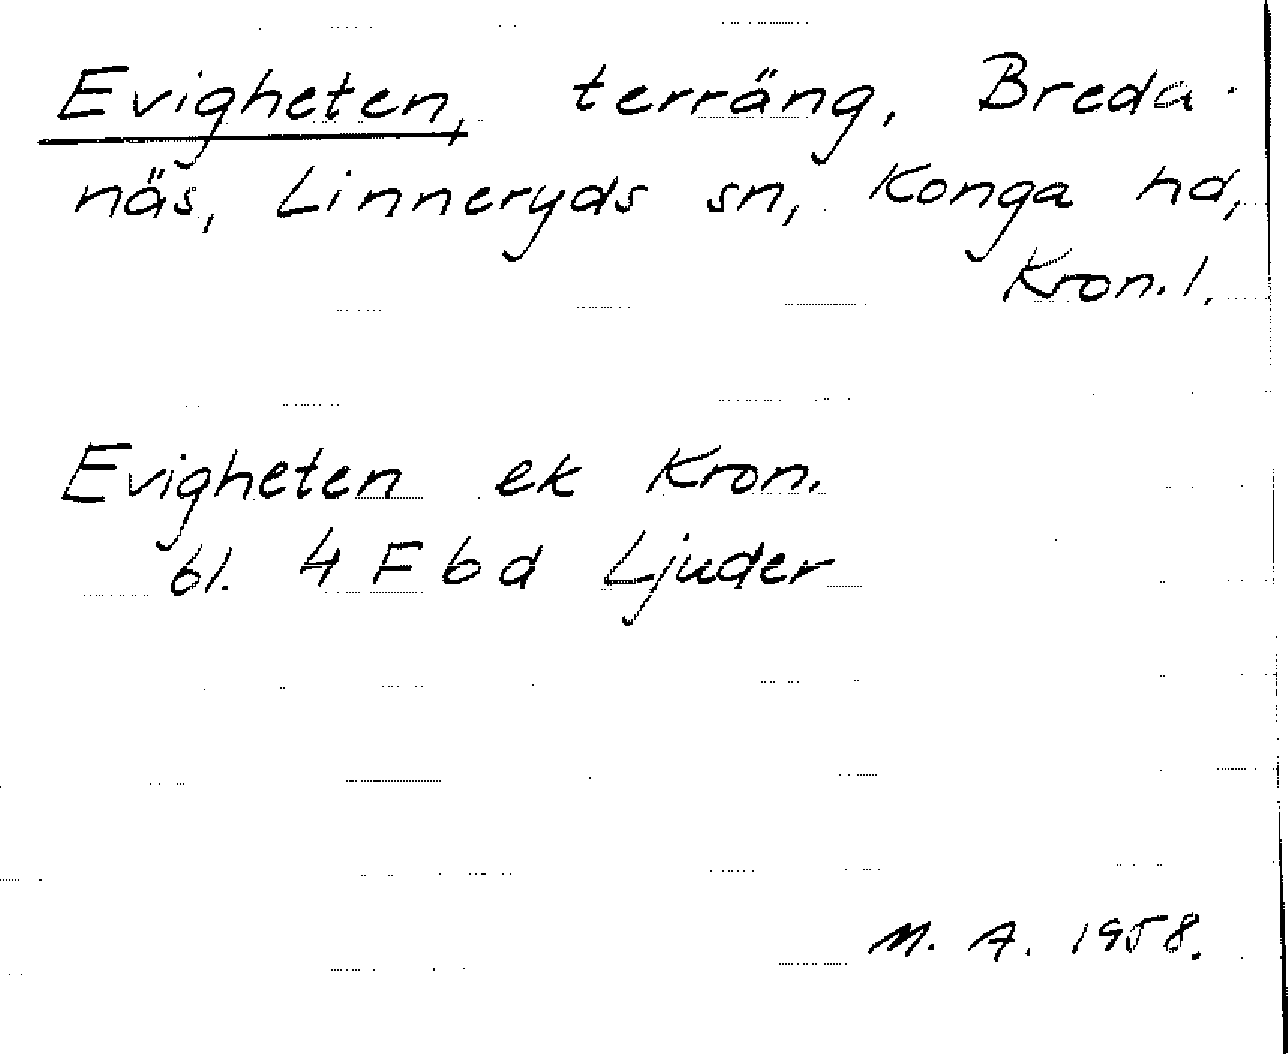 Evigheten, terräng, Breda-
näs, Linneryds sn, Konga hd,
Kron. l.
Evigheten ek Kron.
bl. 4 F b d Ljuder
M. A. 1958.